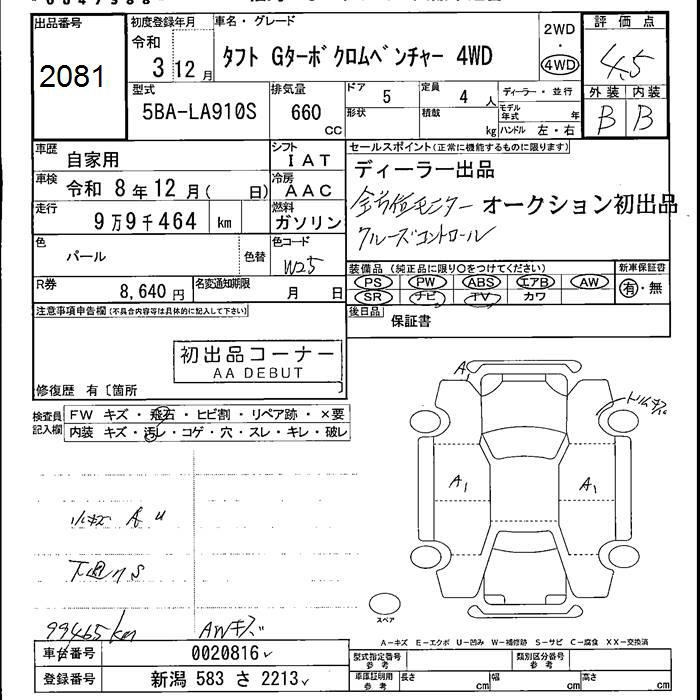 出品番号 初度登録年月 車名・グレード 2WD 評価点
令和 ・
2081 3 12月 タフト Gターボ クロムベンチャー 4WD 4WD 4.5
型式 排気量 ドア 5 定員 4 人 ディーラー・並行 外装 内装
5BA-LA910S 660 cc 形状 積載 kg モデル年式 年 B B
ハンドル 左・右
車歴 自家用 シフト IAT セールスポイント(正常に機能するものに限ります)
車検 令和 8年12月( 日) 冷房 AAC ディーラー出品
走行 9万9千464 km 燃料 ガソリン 全方位モニター オークション初出品
色 パール 色替 色コード W25 クルーズコントロール
装備品(純正品に限り○をつけてください) 新車保証書
R券 8,640円 名変通知期限 月 日 PS PW ABS エアB AW 有・無
SR ナビ TV カワ
注意事項申告欄(不具合内容等は具体的に記入して下さい) 後日品 保証書
初出品コーナー
AA DEBUT
修復歴 有〔箇所 〕
検査員記入欄 FW キズ・飛石・ヒビ割・リペア跡・×要
内装 キズ・汚レ・コゲ・穴・スレ・キレ・破レ
A
A1 A1
小キズ A U
下廻り S
99465km AWキズ
スペア
A-キズ E-エクボ U-凹み W-補修跡 S-サビ C-腐食 XX-交換済
車台番号 0020816 型式指定番号 参考 類別区分番号 参考
登録番号 新潟 583 さ 2213 車庫証明用 参考 長さ cm 幅 cm 高さ cm